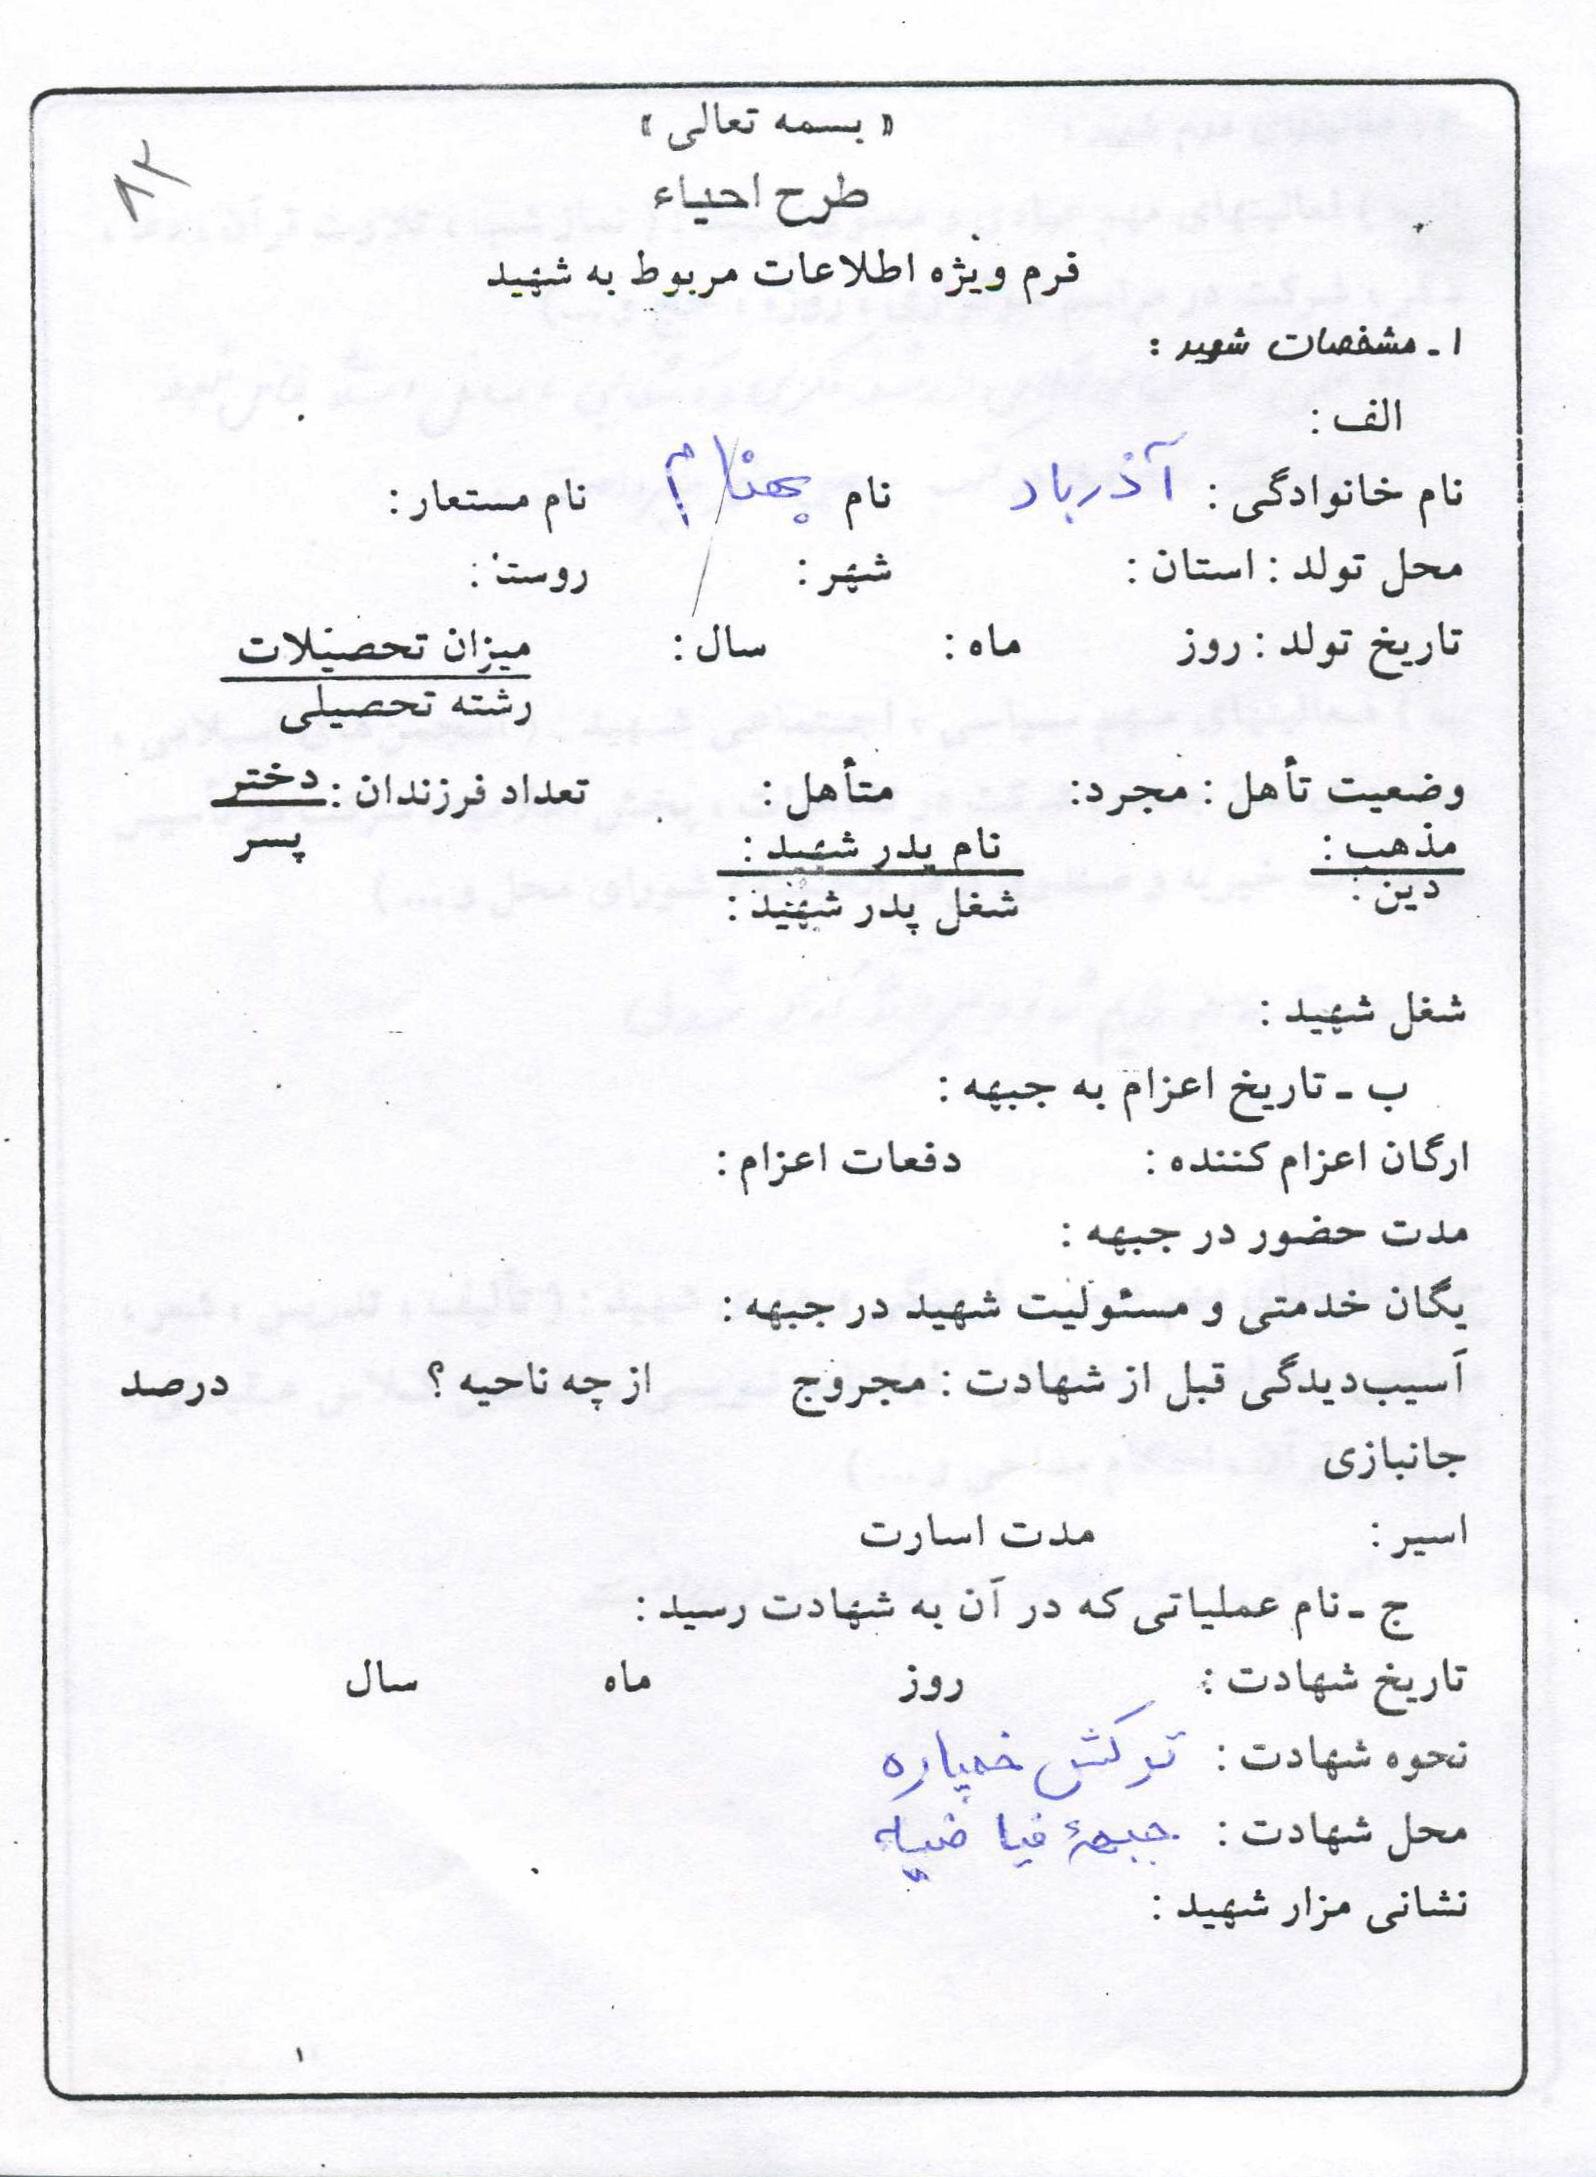 ۸۲
« بسمه تعالی »
طرح احیاء
فرم ویژه اطلاعات مربوط به شهید
۱ ـ مشخصات شهید :
الف :
نام خانوادگی : آذرباد نام بهنام نام مستعار :
محل تولد : استان : شهر : روستا :
تاریخ تولد : روز ماه : سال : میزان تحصیلات
رشته تحصیلی
وضعیت تأهل : مجرد: متأهل : تعداد فرزندان : دختر
پسر
مذهب : نام پدر شهید :
دین : شغل پدر شهید :
شغل شهید :
ب ـ تاریخ اعزام به جبهه :
ارگان اعزام کننده : دفعات اعزام :
مدت حضور در جبهه :
یگان خدمتی و مسئولیت شهید در جبهه :
آسیب‌دیدگی قبل از شهادت : مجروح از چه ناحیه ؟ درصد
جانبازی
اسیر : مدت اسارت
ج ـ نام عملیاتی که در آن به شهادت رسید :
تاریخ شهادت : روز ماه سال
نحوه شهادت : ترکش خمپاره
محل شهادت : جبههٔ فیاضیه
نشانی مزار شهید :
۱